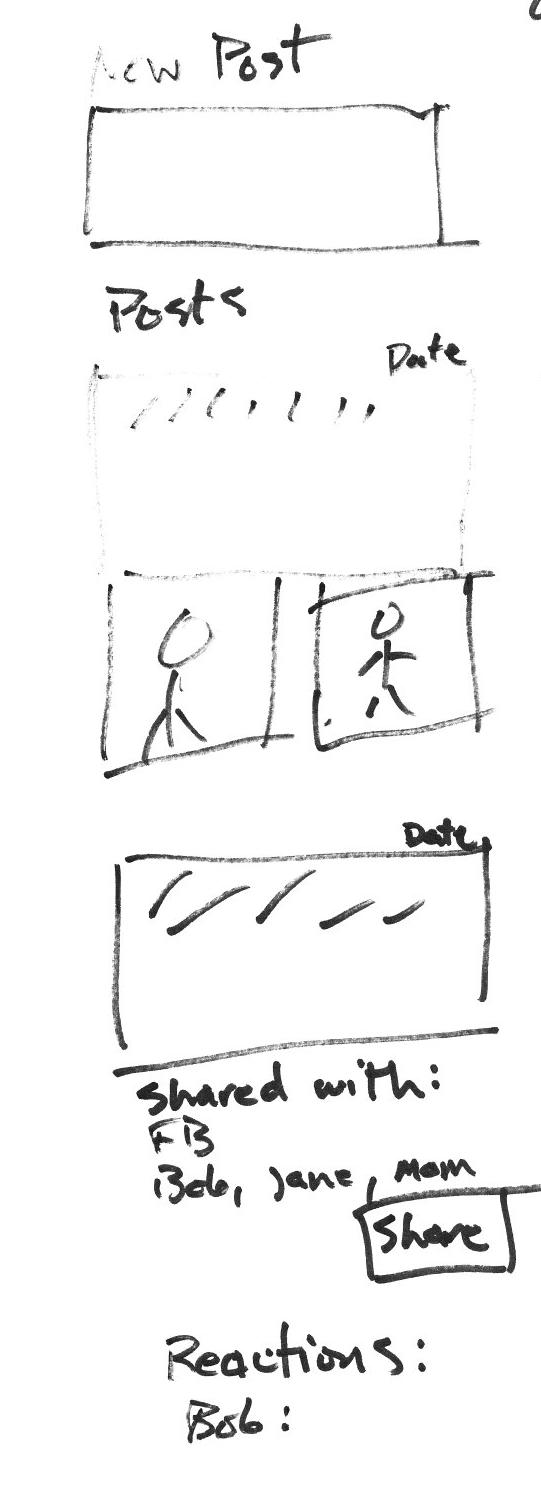 New Post
Posts
Date
Date
Shared with:
FB
Bob, Jane, Mom
Share
Reactions:
Bob: